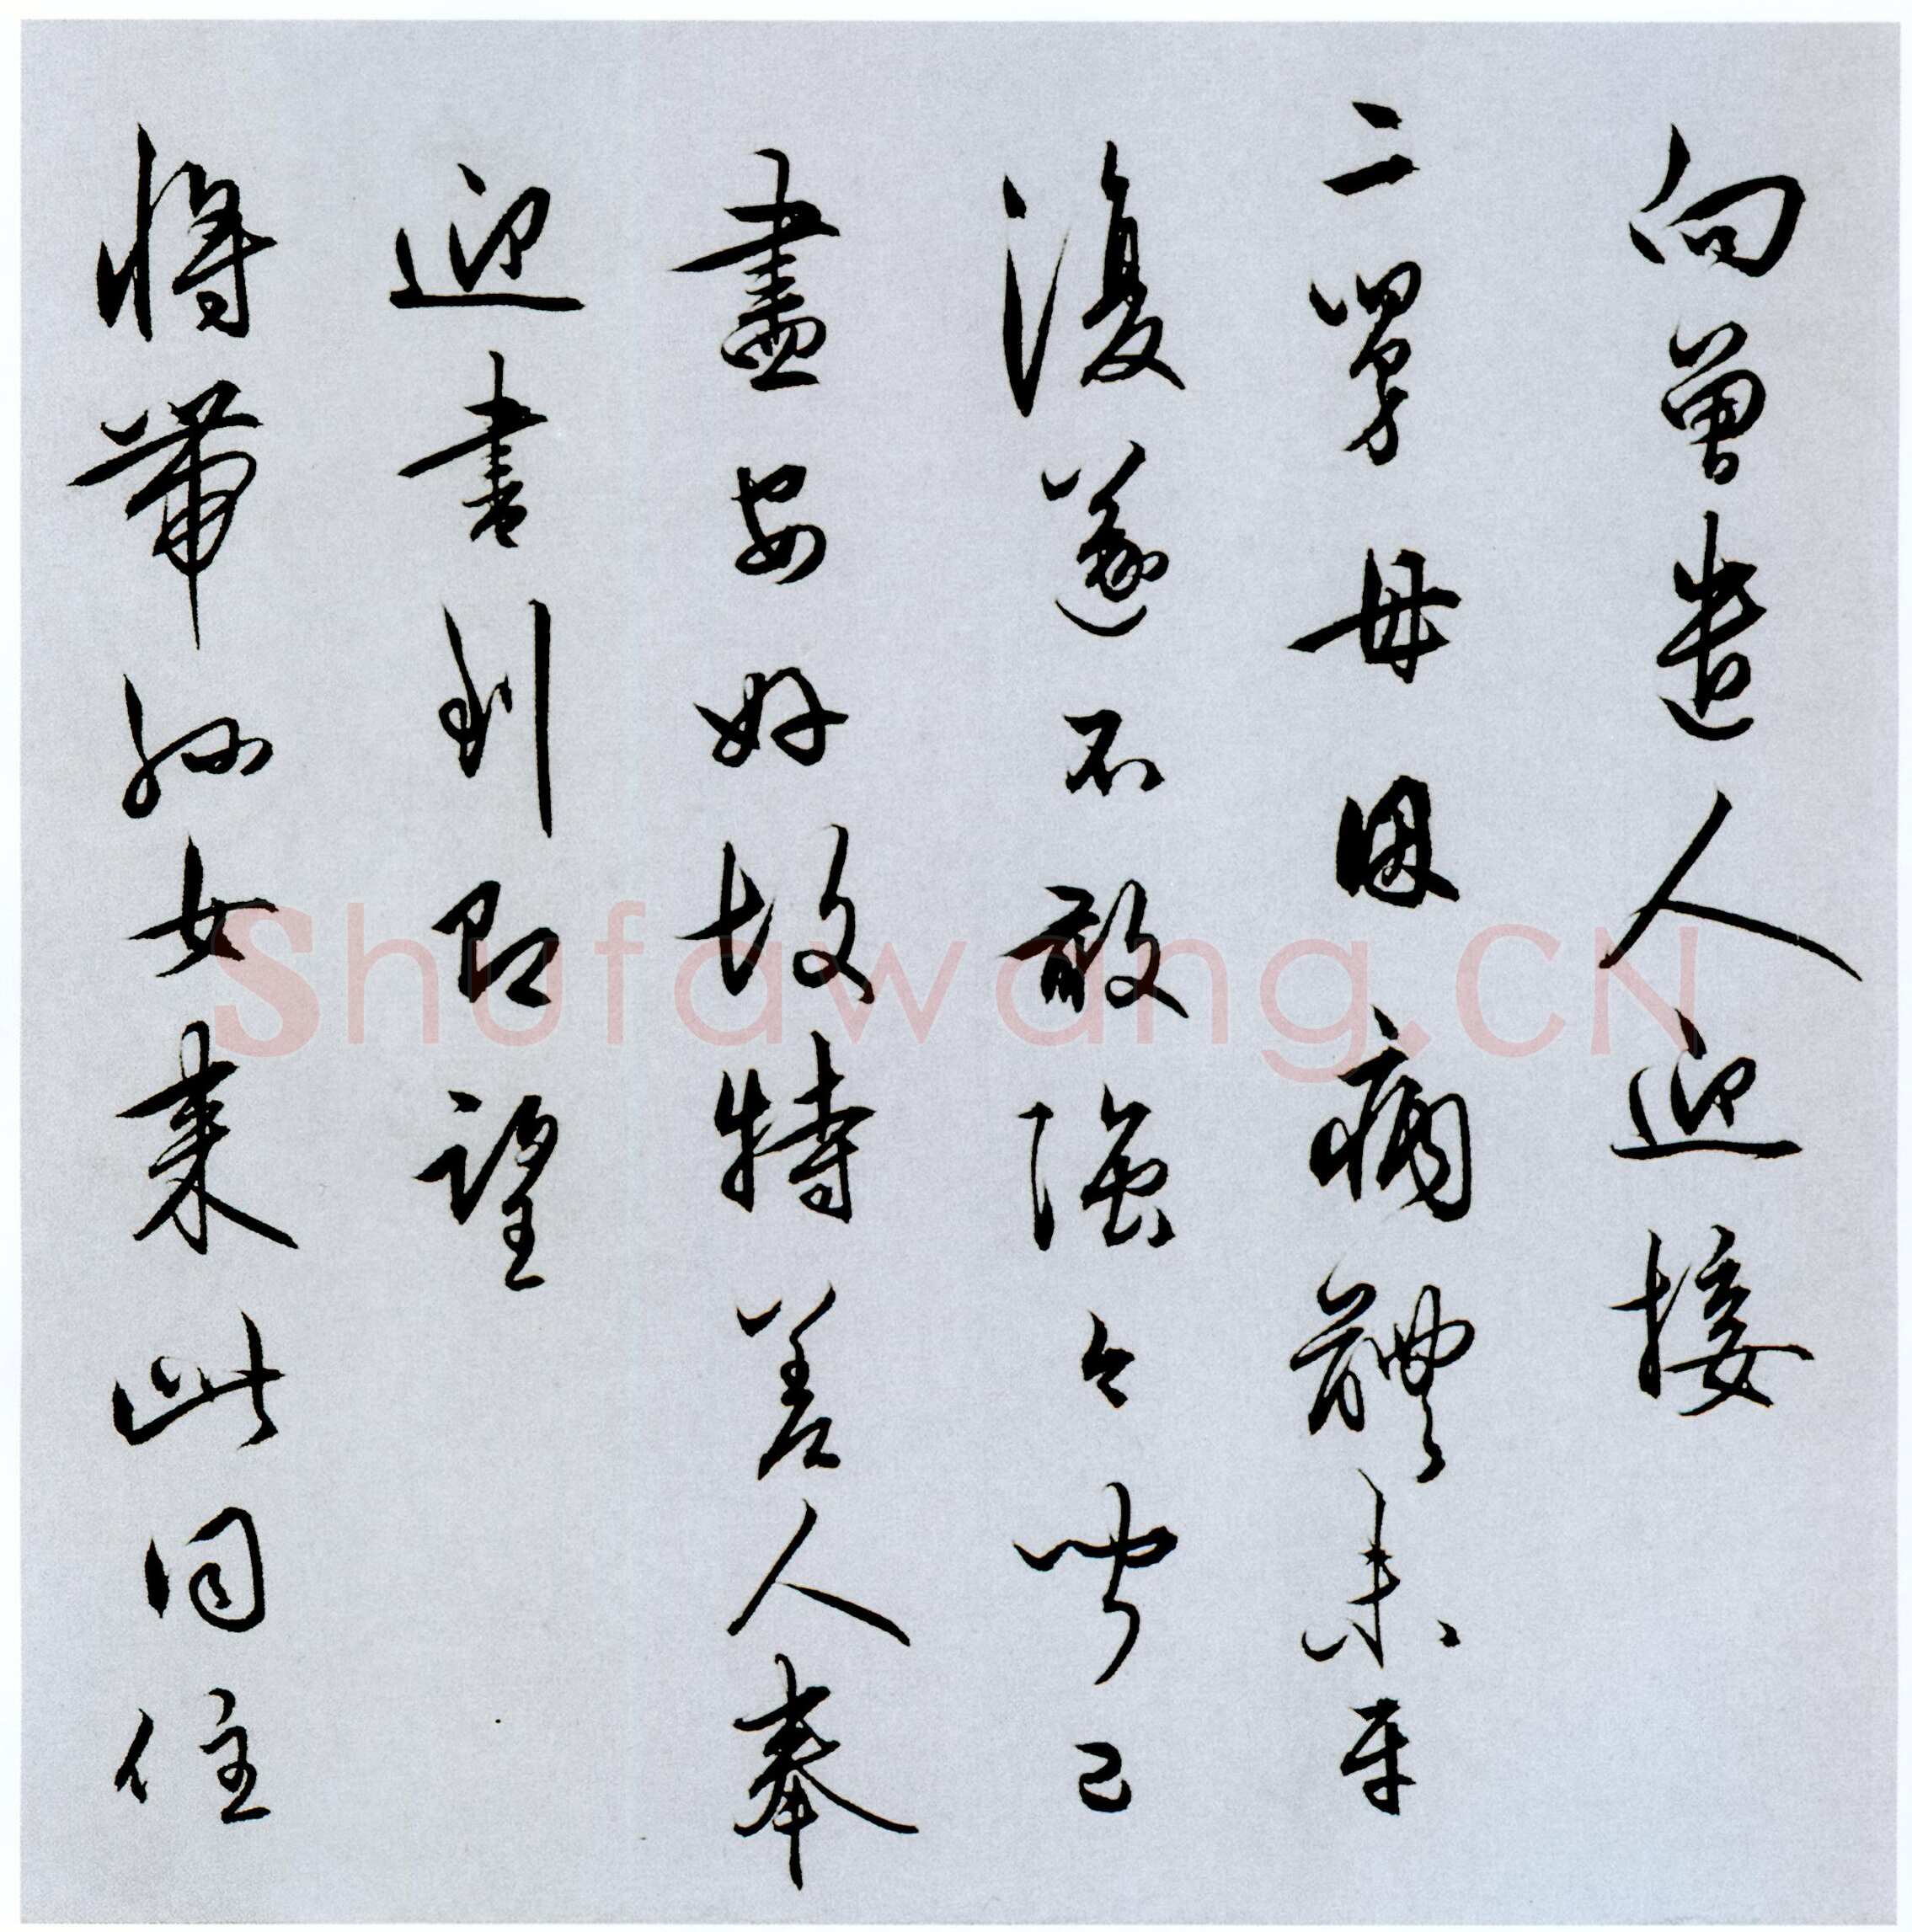 向曾遣人迎接
二舅母因病體未平
復遂不敢强今聞已
盡安好故特差人奉
迎書到即望
將帶孫女来此同住
Shufawang.CN